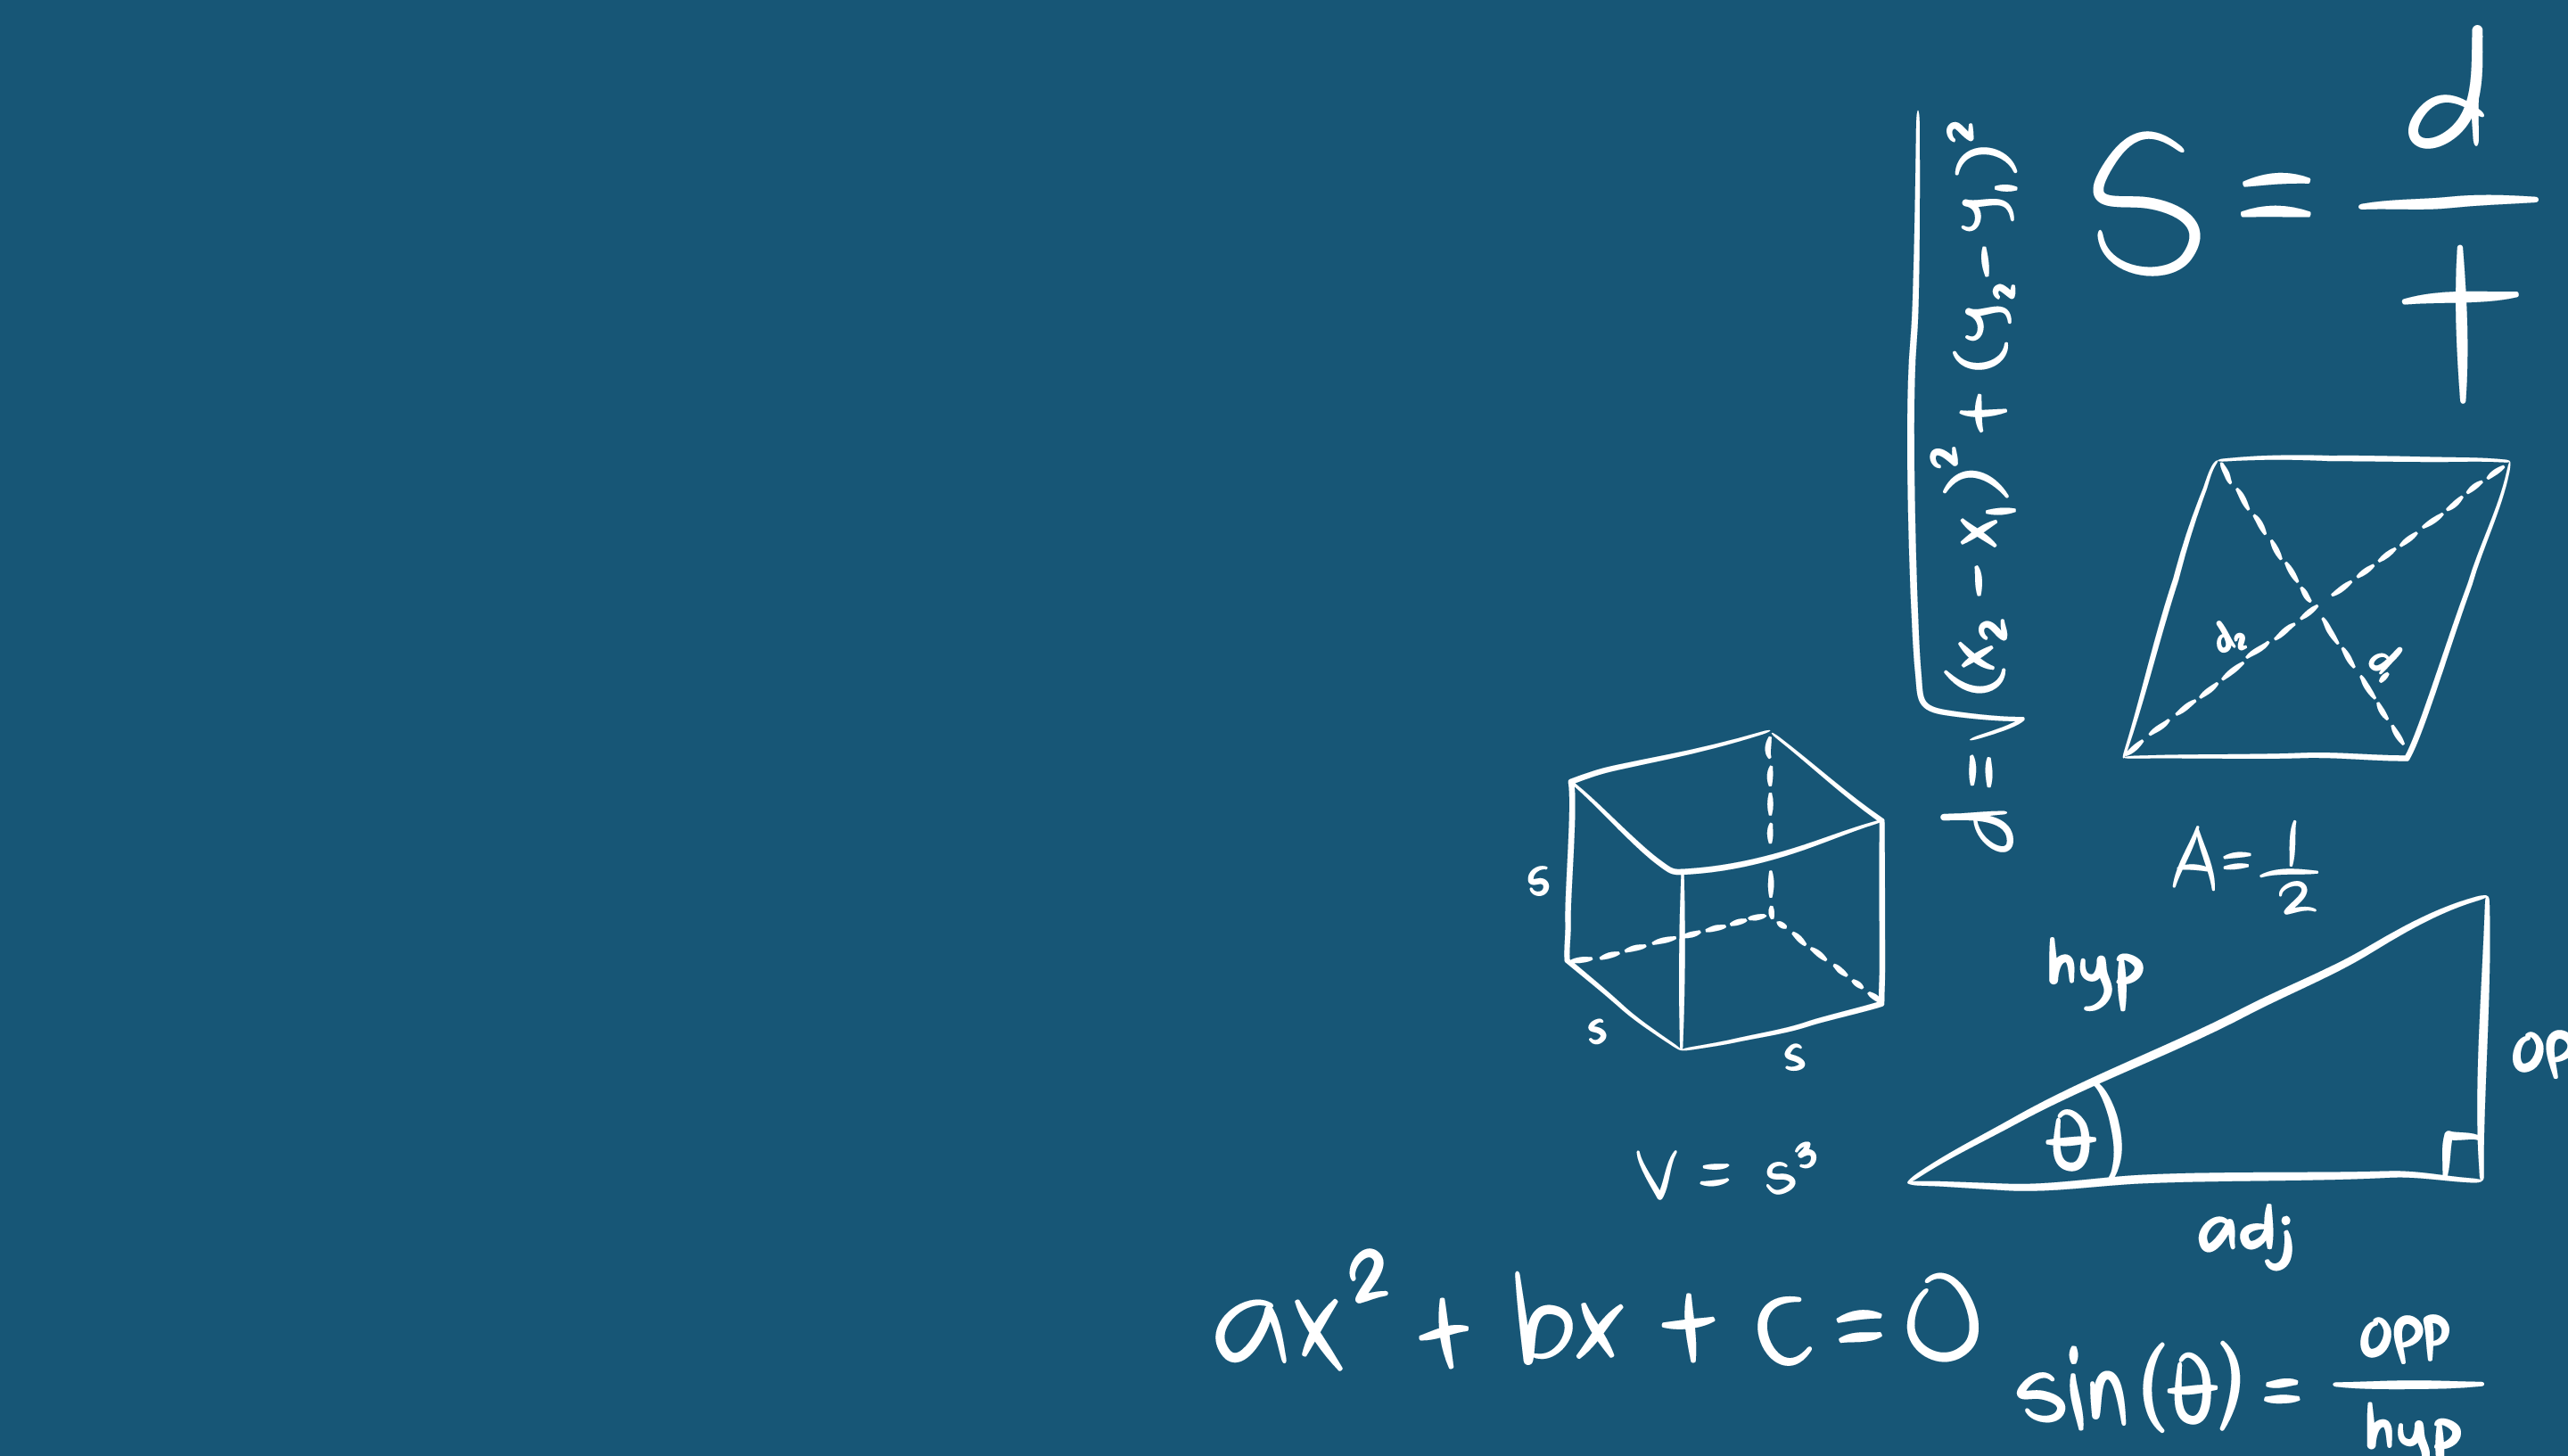 S = d/t
d = √(x₂ - x₁)² + (y₂ - y₁)²
d₂
d₁
A = 1/2
s
s
s
V = s³
hyp
op
θ
adj
ax² + bx + c = 0
sin(θ) = opp/hyp